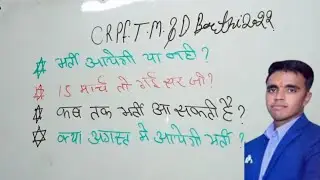 CRPF. T.M. & D Barthi 2022
☆ भर्ती आयेगी या नही ?
☆ 15 मार्च तो गई सर जी ?
☆ कब तक भर्ती आ सकती है ?
☆ क्या अगस्त मे आयेगी भर्ती ?